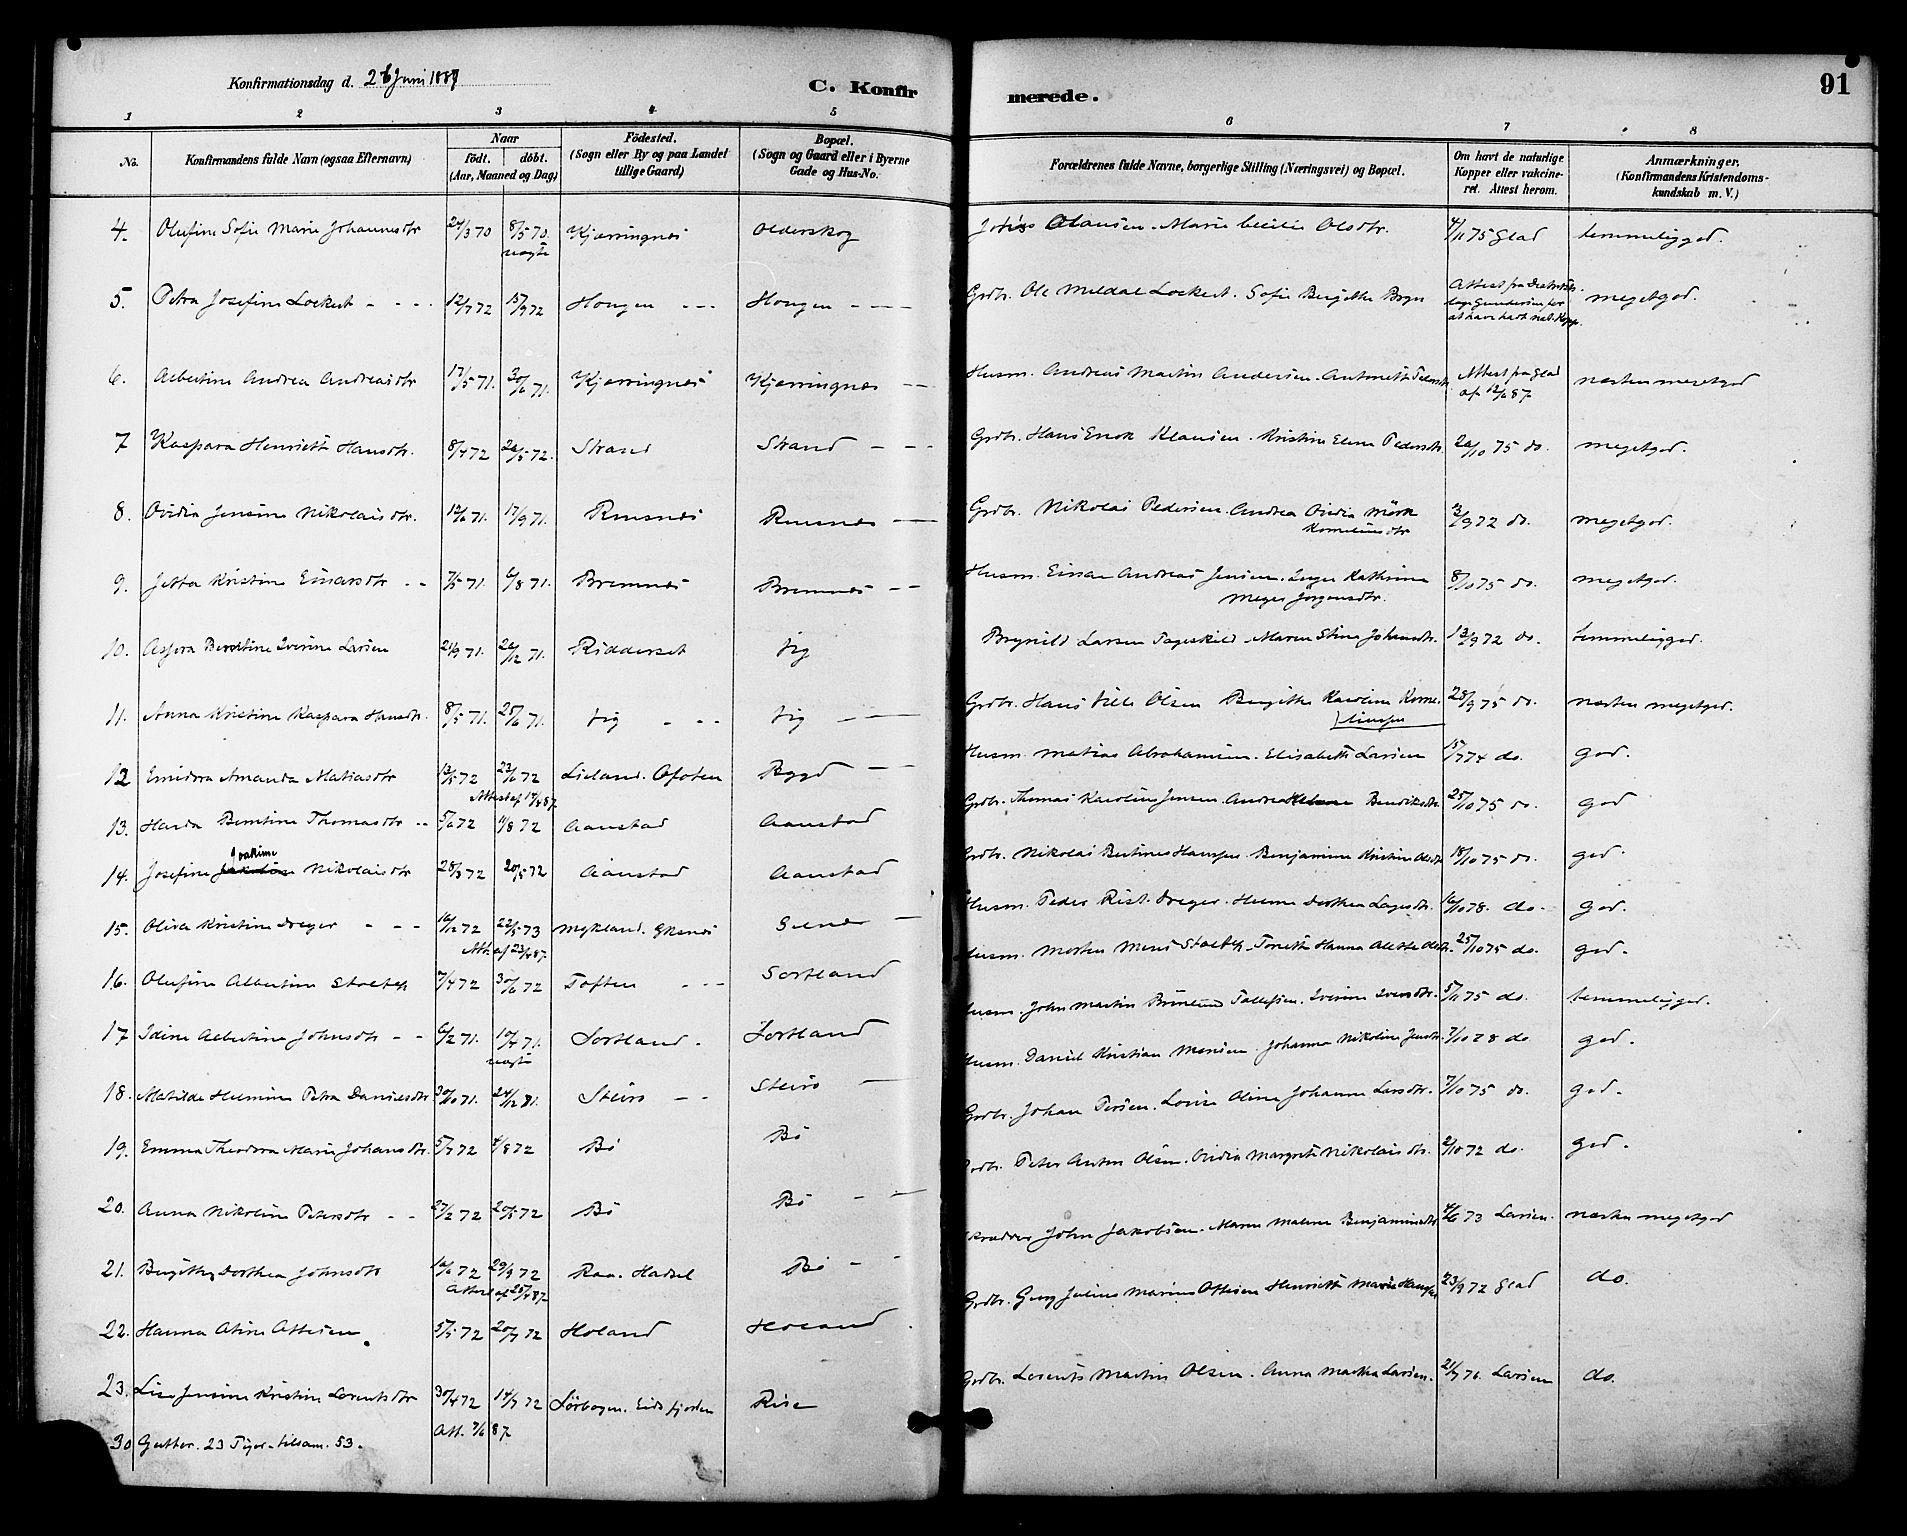 Konfirmationsdag d. 26 Juni 1887
C. Konfirmerede.
91
1 2 3 4 5 6 7 8
No.
Konfirmandens fulde Navn (ogsaa Efternavn)
Naar
födt. döbt.
(Aar, Maaned og Dag)
Födested.
(Sogn eller By og paa Landet
tillige Gaard)
Bopæl.
(Sogn og Gaard eller i Byerne
Gade og Hus-No.
Forældrenes fulde Navne, borgerlige Stilling (Næringsvei) og Bopæl.
Om havt de naturlige
Kopper eller vakcine-
ret. Attest herom.
Anmærkninger.
(Konfirmandens Kristendoms-
kundskab m. V.)
4. Olufine Sofie Marie Johannesdtr 24/3 70 8/5 70 Kjærringnes Olderskog Olausen. Marie Cecilie Olsdtr. 4/11 75 Glad temmeliggod.
5. Petra Josefine Lockert 12/7 72 15/9 72 Hougen Hougen Grdbr. Ole Meldal Lockert. Sofie Birgitte megetgod.
6. Albertine Andrea Andreasdtr 17/5 71. 30/6 71. Kjærringnes Kjærringnes Husm. Andreas Martin Andersen. Attest fra Glad
af 12/6 87 næsten megetgod
7 Kaspara Henriette Hansdtr. 8/4 72 26/5 72. Strand Strand Grdbr. Hans Enok Klausen. Kristine Elene Pedersdtr. 20/10 75 do. megetgod.
8. Ovidia Jensine Nikolaisdtr. 12/6 71. 17/9 71. Grdbr. Nikolai Pedersen. Andrea Ovidia Mörk
Korneliusdtr 13/9 72 do. megetgod.
9. Jetta Kristine Einarsdtr 7/5 71. 6/8 71. Bremnes Bremnes Husm. Einar Andreas Jensen. Inger Kathrine
Meyer Jörgensdtr. 8/10 75 do. megetgod.
10. Iverine Larsen 21/9 71. 26/12 71. Ridderset Jig Brynild Larsen . Maren Stina Johansdtr. 13/9 72 do. temmeliggod.
11. Anna Kristine Kaspara Hansdtr. 8/5 71. 25/6 71. Jig Jig Grdbr. Hans Olsen Birgitte Karoline Korne-
liusen 28/9 75 do. næsten megetgod.
12 Amanda Matiasdtr 13/5 72 23/6 72 Lieland. Ofoten Bygd Husm. Matias Abrahamsen. Elisabeth Larsen 15/7 74 do. god.
13. Bentine Thomasdtr 5/6 72 11/8 72 Aanstad Aanstad Grdbr. Thomas Karolius Jensen. Bendiksdtr. 25/10 75 do. god
14. Josefine Joakime Nikolaisdtr 28/3 72 20/5 72 Aanstad Aanstad Grdbr. Nikolai Bertines Hansen. Benjamine Kristine Olsdtr 18/10 75 do. god.
15. Oliva Kristine Dreyer 16/12 72 22/5 73 Mykland. Öksnes Selnes Husm. Peder Rist. Dreyer. Dorthea 16/10 78. do. god.
Att. af 23/4 87.
16. Olufine Albertine 7/4 72 30/6 72 Toften Sortland Husm. Morten 25/10 75 do. god.
17 Idine Albertine Johnsdtr 6/2 71. 10/4 71. Sortland. Sortland Husm. John Martin Tollefsen. Iverine Iversdtr. 5/11 75 do. temmeliggod.
18. Matilde Helmine Petra Danielsdtr 30/10 71. 24/12 71. Steiro Steiro Husm. Daniel Kristian Monsen. Johanna Nikoline Jensdtr 7/10 78 do god.
19. Emma Theodora Marie Johansdtr. 5/7 72 4/8 72 Bö Bö Grdbr. Johan Persen. Lovise Oline Johanna Larsdtr. 7/10 75 do. god.
20. Anna Nikoline Petersdtr 27/2 72 20/5 72 Bö Bö Peter Anton Olsen. Ovidia Margrete Nikolaisdtr. 2/10 72 do. god.
21. Dorthea Johnsdtr 16/6 72 29/9 72 Raa. Hadsel Bö John Jakobsen. Maren Malene Benjaminsdtr 4/6 73 Larsen. næsten megetgod
22. Hanna Ottesen 5/5 72 20/7 72 Holand Holand Grdbr. Georg Julius Marius Ottesen Henriette Marie Hansen 23/9 72 Glad do.
23. Lise Jensine Kristine Lorentsdtr 30/4 72 14/7 72 Sörbogen. Eidsfjorden Rise Grdbr. Lorents Martin Olsen. Anna Martha Larsen. 21/9 76. Larsen do.
30 Gutter. 23 Piger. tilsam. 53.